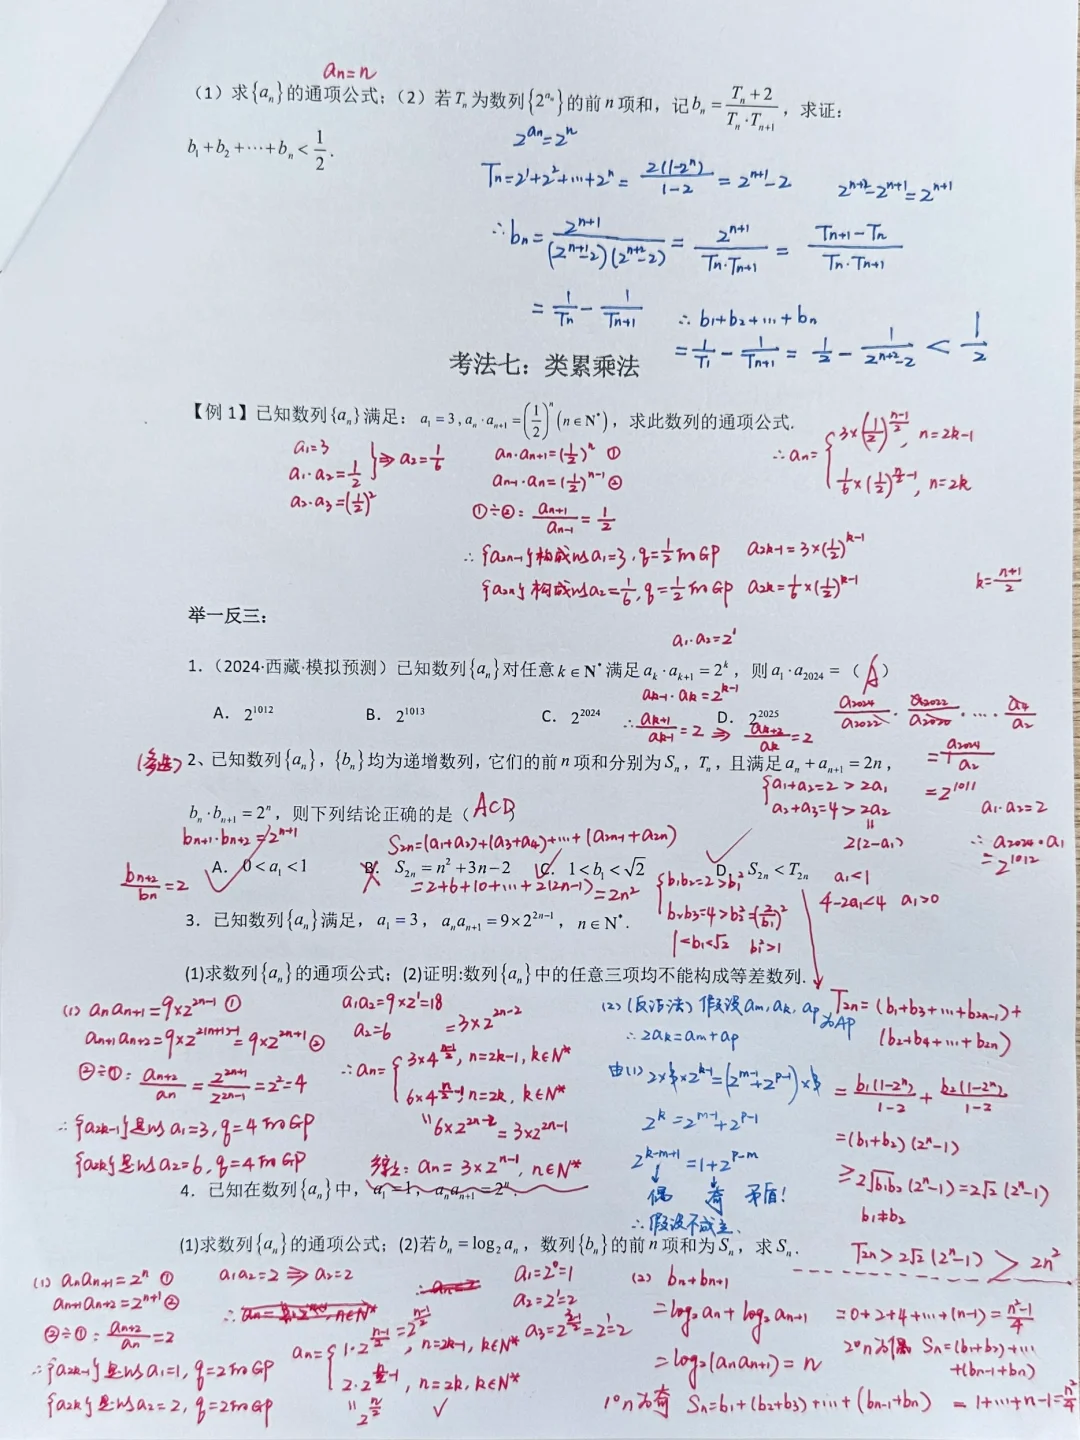 an=n
(1)求{aₙ}的通项公式;(2)若Tₙ为数列{2^{aₙ}}的前n项和,记bₙ=(Tₙ+2)/(Tₙ·Tₙ₊₁),求证:
b₁+b₂+⋯+bₙ<1/2.
2^{an}=2^n
Tn=2^1+2^2+…+2^n=2(1-2^n)/(1-2)=2^{n+1}-2
2^{n+2}-2^{n+1}=2^{n+1}
∴bn=2^{n+1}/((2^{n+1}-2)(2^{n+2}-2))=2^{n+1}/(Tn·Tn+1)=(Tn+1-Tn)/(Tn·Tn+1)
=1/Tn-1/Tn+1
∴b1+b2+…+bn
=1/T1-1/Tn+1=1/2-1/(2^{n+2}-2)<1/2
考法七:类累乘法
【例1】已知数列{aₙ}满足:a₁=3,aₙ·aₙ₊₁=(1/2)^n(n∈N*),求此数列的通项公式.
a1=3
a1·a2=1/2
a2·a3=(1/2)^2
}⇒a2=1/6
an·an+1=(1/2)^n ①
an-1·an=(1/2)^{n-1} ②
①÷②:an+1/an-1=1/2
∴an={3×(1/2)^{(n-1)/2}, n=2k-1
1/6×(1/2)^{n/2-1}, n=2k
∴{a2n-1}构成以a1=3,q=1/2的GP a2k-1=3×(1/2)^{k-1}
{a2n}构成以a2=1/6,q=1/2的GP a2k=1/6×(1/2)^{k-1}
k=(n+1)/2
举一反三:
a1·a2=2^1
1.(2024·西藏·模拟预测)已知数列{aₙ}对任意k∈N*满足aₖ·aₖ₊₁=2^k,则a₁·a₂₀₂₄=( A )
ak-1·ak=2^{k-1}
A. 2^1012 B. 2^1013 C. 2^2024 D. 2^2025
∴ak+1/ak-1=2⇒ak+2/ak=2
a2024/a2022·a2022/a2020·…·a4/a2
=a2024/a2
=2^1011
a1·a2=2
∴a2024·a1
=2^1012
(多选)2、已知数列{aₙ},{bₙ}均为递增数列,它们的前n项和分别为Sₙ,Tₙ,且满足aₙ+aₙ₊₁=2n,
bₙ·bₙ₊₁=2^n,则下列结论正确的是( ACD )
{a1+a2=2>2a1
a2+a3=4>2a2
=
2(2-a1)
bn+1·bn+2=2^{n+1}
bn+2/bn=2
S2n=(a1+a2)+(a3+a4)+…+(a2n-1+a2n)
A. 0<a₁<1 B. S₂ₙ=n²+3n-2 C. 1<b₁<√2 D. S₂ₙ<T₂ₙ
=2+6+10+…+2(2n-1)=2n²
a1<1
4-2a1<4 a1>0
{b1b2=2>b1²
b2b3=4>b2²=(2/b1)²
1<b1<√2 b1²>1
3. 已知数列{aₙ}满足,a₁=3,aₙaₙ₊₁=9×2^{2n-1},n∈N*.
(1)求数列{aₙ}的通项公式;(2)证明:数列{aₙ}中的任意三项均不能构成等差数列.
(1) an an+1=9×2^{2n-1} ①
an+1 an+2=9×2^{2(n+1)-1}=9×2^{2n+1} ②
②÷①:an+2/an=2^{2n+1}/2^{2n-1}=2²=4
∴{a2k-1}是以a1=3,q=4的GP
{a2k}是以a2=6,q=4的GP
a1a2=9×2^1=18
a2=6
=3×2^{2n-2}
∴an={3×4^{(n-1)/2}, n=2k-1, k∈N*
6×4^{n/2-1}, n=2k, k∈N*
"6×2^{2n-2}=3×2^{2n-1}
综上:an=3×2^{n-1}, n∈N*
(2)(反证法)假设am,ak,ap为AP
∴2ak=am+ap
由(1)2×3×2^{k-1}=(2^{m-1}+2^{p-1})×3
2^k=2^{m-1}+2^{p-1}
2^{k-m+1}=1+2^{p-m}
偶 奇 矛盾!
∴假设不成立.
T2n=(b1+b3+…+b2n-1)+
(b2+b4+…+b2n)
=b1(1-2^n)/(1-2)+b2(1-2^n)/(1-2)
=(b1+b2)(2^n-1)
≥2√(b1b2)(2^n-1)=2√2(2^n-1)
b1≠b2
T2n>2√2(2^n-1)>2n²
4. 已知在数列{aₙ}中,a₁=1,aₙaₙ₊₁=2^n.
(1)求数列{aₙ}的通项公式;(2)若bₙ=log₂aₙ,数列{bₙ}的前n项和为Sₙ,求Sₙ.
(1) an an+1=2^n ①
an+1 an+2=2^{n+1} ②
②÷①:an+2/an=2
∴{a2k-1}是以a1=1,q=2的GP
{a2k}是以a2=2,q=2的GP
a1a2=2⇒a2=2
an={1·2^{(n-1)/2}=2^{(n-1)/2}, n=2k-1, k∈N*
2·2^{n/2-1}, n=2k, k∈N*
"2^{n/2}
a1=2^0=1
a2=2^1=2
a3=2^{(3-1)/2}=2^1=2
(2) bn+bn+1
=log2 an+log2 an+1
=log2(an an+1)=n
1°n为奇 Sn=b1+(b2+b3)+…+(bn-1+bn)
=0+2+4+…+(n-1)=(n²-1)/4
2°n为偶 Sn=(b1+b2)+…
+(bn-1+bn)
=1+…+n-1=n²/4